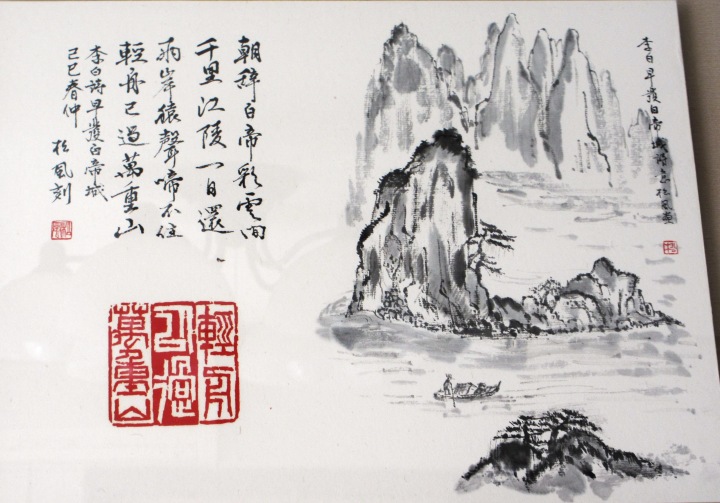 李白早發白帝城詩意松風畫
朝辞白帝彩雲间
千里江陵一日還
兩岸猿聲啼不住
輕舟已過萬重山
李白詩早發白帝城
己巳春仲 松風刻
輕舟
已過
萬重山